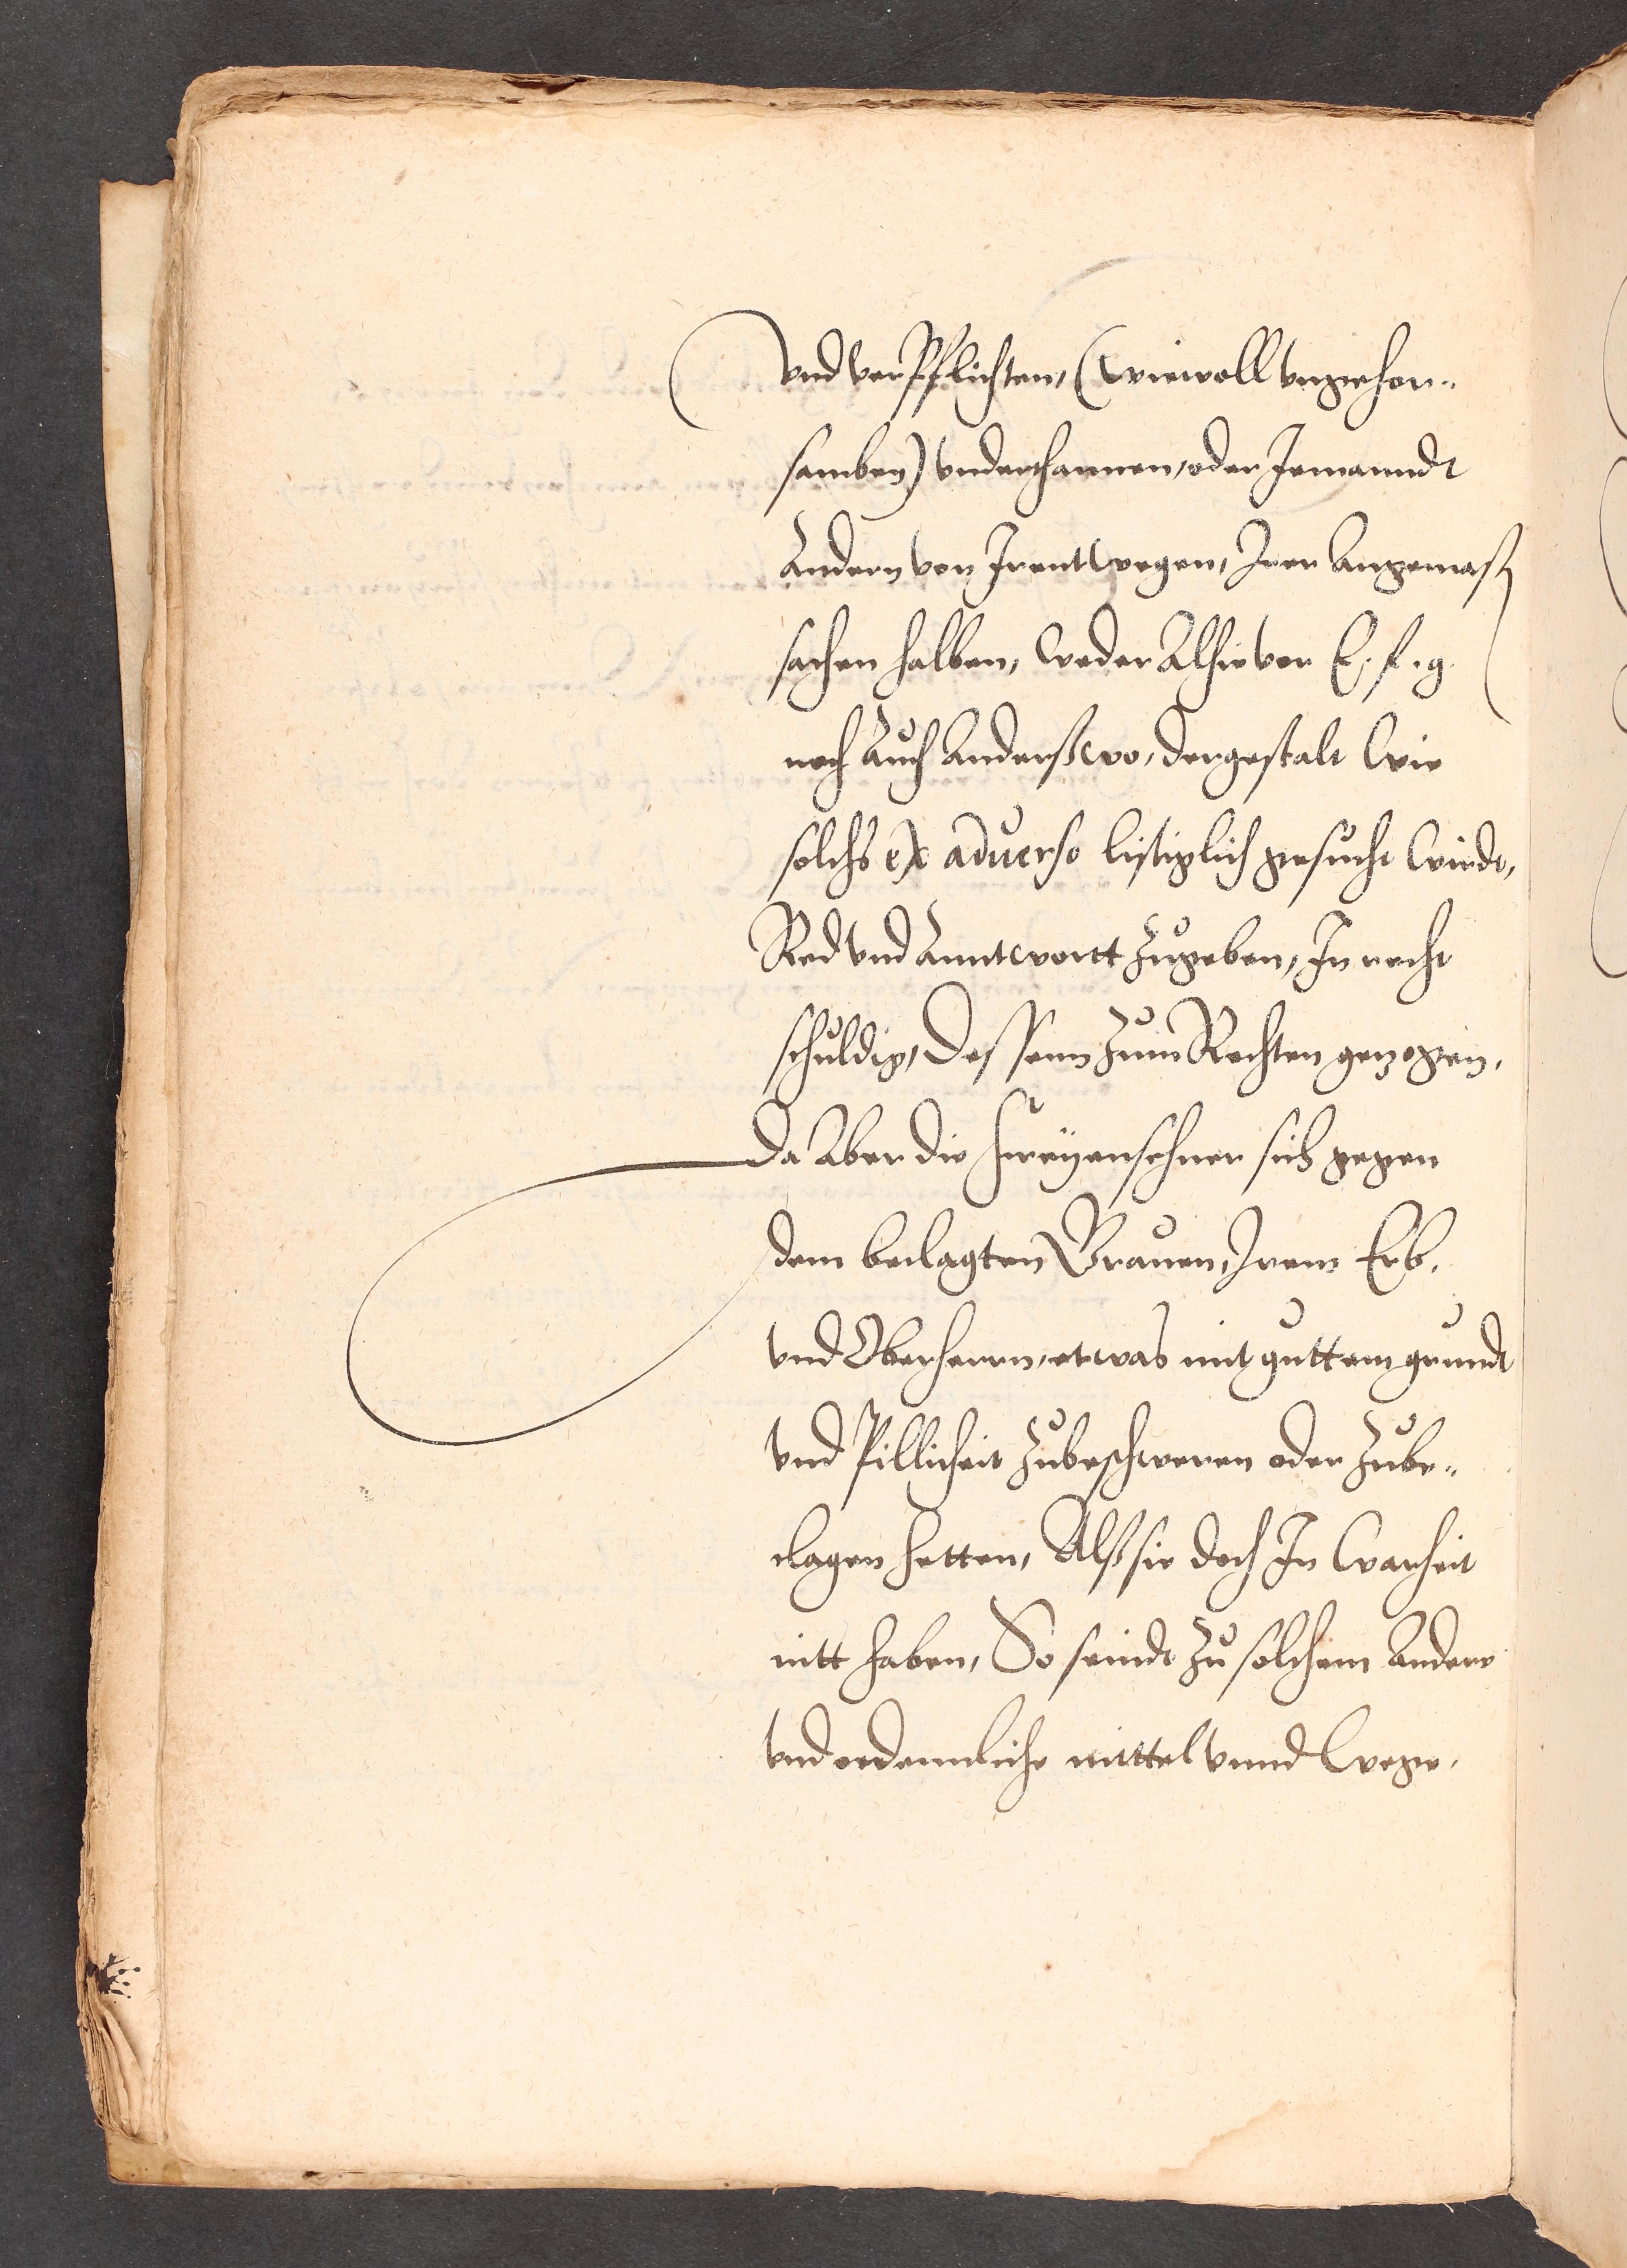 vnd verpflichten, (wiewoll vngehor-
samben) vnderthannen, oder Jemanndt
Andern von Jrentwegen, Jrer Angemast
sachen halben, weder Alhie vor E. f. g.
noch Auch Anderßwo, dergestalt wie
solchs ex aduerso listiglich gesucht wirdt,
Red vnd Anntwortt zugeben, Jn recht
schuldig, Dessenn zum Rechten gezogen,
Da Aber die sich gegen
dem beclagten Grauen, Jrem Erb,
vnd Oberherrn, etwas mit guttem grundt
vnd Pillicheit zubeschweren oder zube-
clagen hetten, Alß sie doch Jn warheit
nitt haben, So seindt zu solchem Andere
vnd ordennliche mittel vnnd wege,